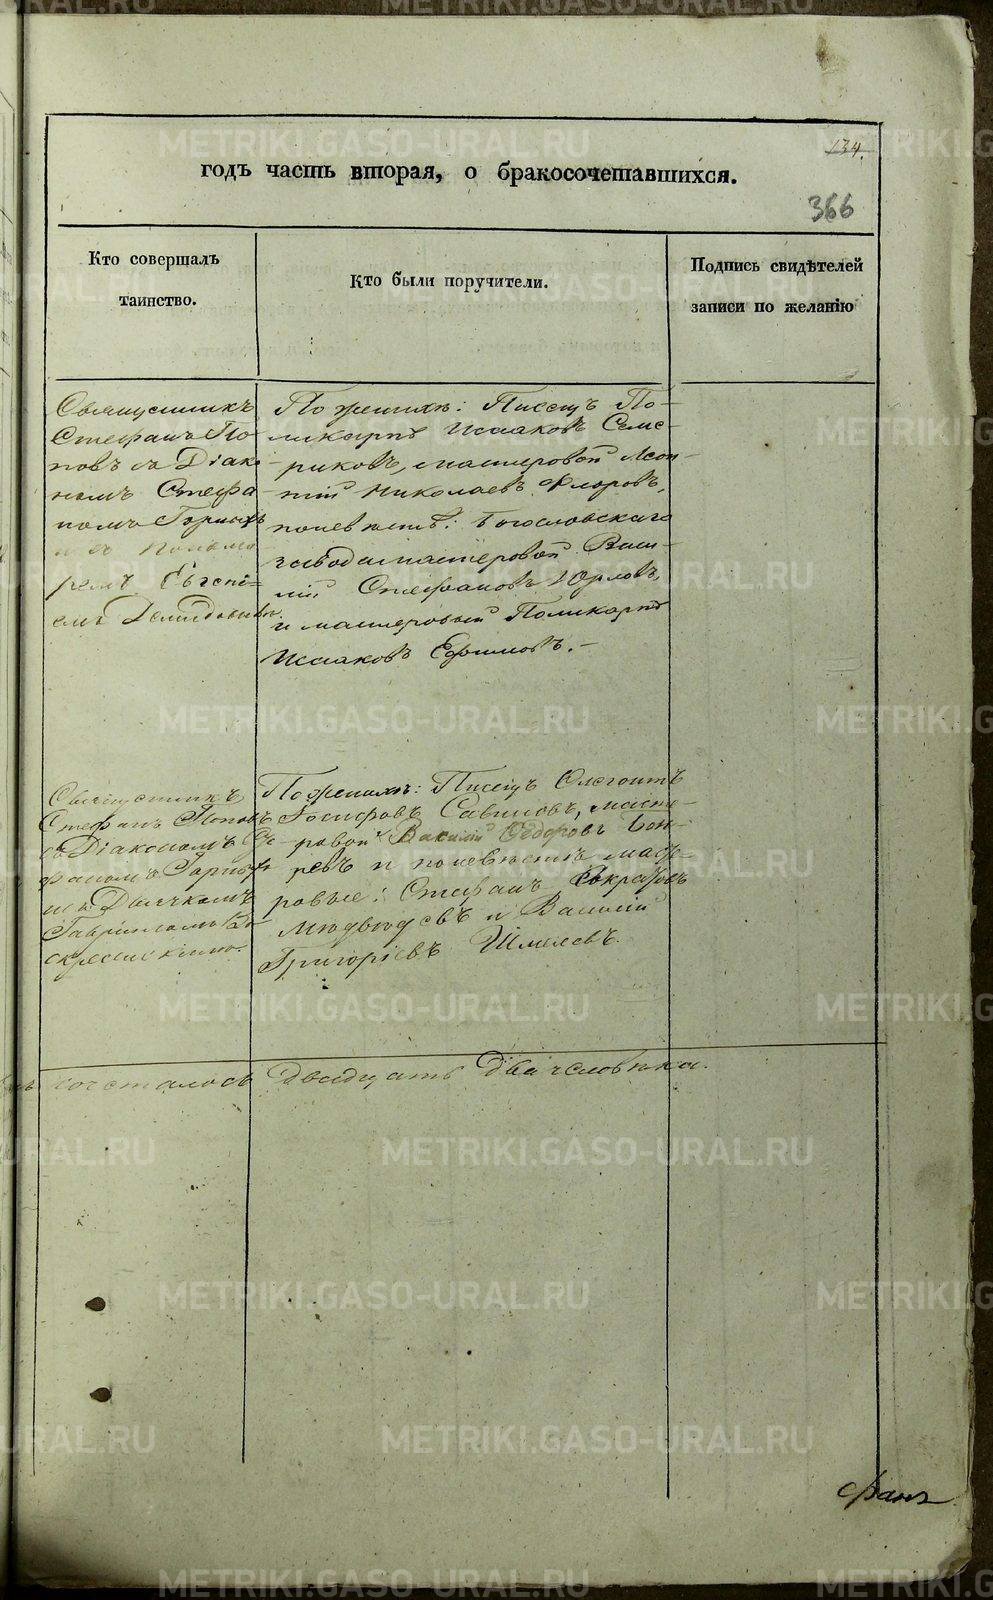 134.
годъ часть вторая, о бракосочетавшихся.
366
Кто совершалъ
таинство.
Кто были поручители.
Подпись свидѣтелей
записи по желанію
Священникъ
Стефанъ По-
повъ съ Діако-
номъ Стефа-
номъ
и съ Понома-
ремъ Евгені-
емъ
По женихѣ: Писецъ По-
ликарпъ Исааковъ Саме-
риковъ, мастеровой Леон-
тій Николаевъ Флоровъ,
по невѣстѣ: Богословскаго
завода мастеровой Васи-
лій Стефановъ Юрловъ,
и мастеровый Поликарпъ
Исааковъ Ефимовъ.
Священникъ
Стефанъ Поповъ
съ Діакономъ Сте-
фаномъ
Дьячкомъ
Гавріиломъ Во-
скресенскимъ.
По женихѣ: Писецъ
Іосифовъ Савиновъ, масте-
ровой Василій Ѳедоровъ
и по невѣстѣ масте-
ровые: Стефанъ
и Василій
Григорьевъ Шмелевъ.
сочеталось двадцать два человѣка.
METRIKI.GASO-URAL.RU